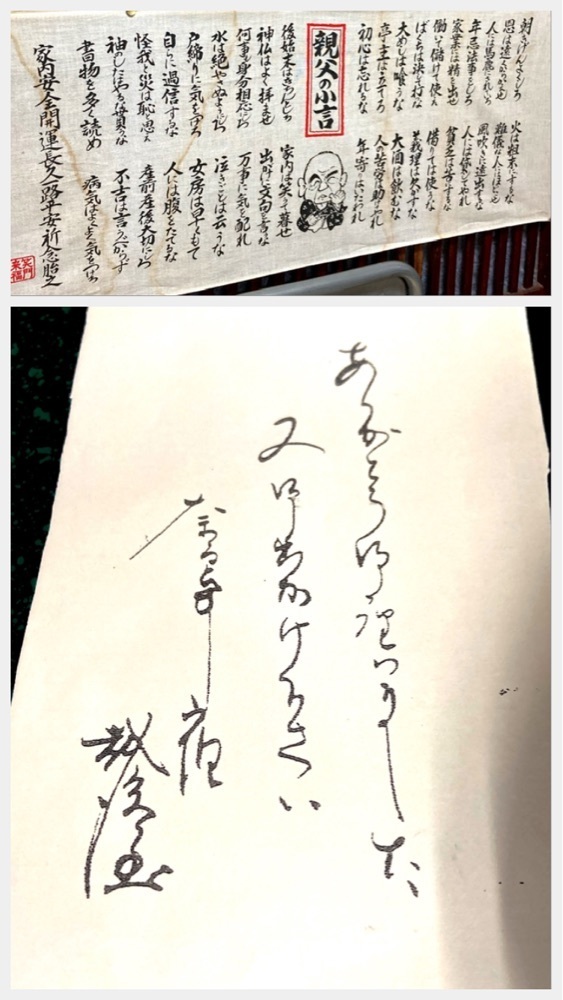 朝きげんよくしろ
恩は遠くからかくせ
人には馬鹿にされていろ
年忌法事をしろ
家業には精を出せ
働いて儲けて使え
ばくちは決して打つな
大めしは喰うな
亭主はたてろ
初心は忘れるな
火は粗末にするな
難儀な人にほどこせ
風吹きに遠出するな
人には貸してやれ
貧乏は苦にするな
借りては使うな
義理は欠かすな
大酒は飲むな
人の苦労は助けてやれ
年寄りはいたわれ
親父の小言
後始末はきちんとしろ
神仏はよく拝ませ
何事も身分相応にしろ
水は絶やさぬようにしろ
戸締りに気をつけろ
自らに過信するな
怪我と災は恥と思え
袖のしたやるな貰うな
書物を多く読め
家内は笑って暮せ
出かけに文句を言うな
万事に気を配れ
泣きごとは云うな
女房は早くもて
人には腹をたてるな
産前産後大切にしろ
不吉は言うべからず
病気はよくよく気をつけろ
家内安全開運長久八路平安祈念貼之
笑門来福
ありがとう御座いました
又御出かけ下さい
奈良井宿
越後屋